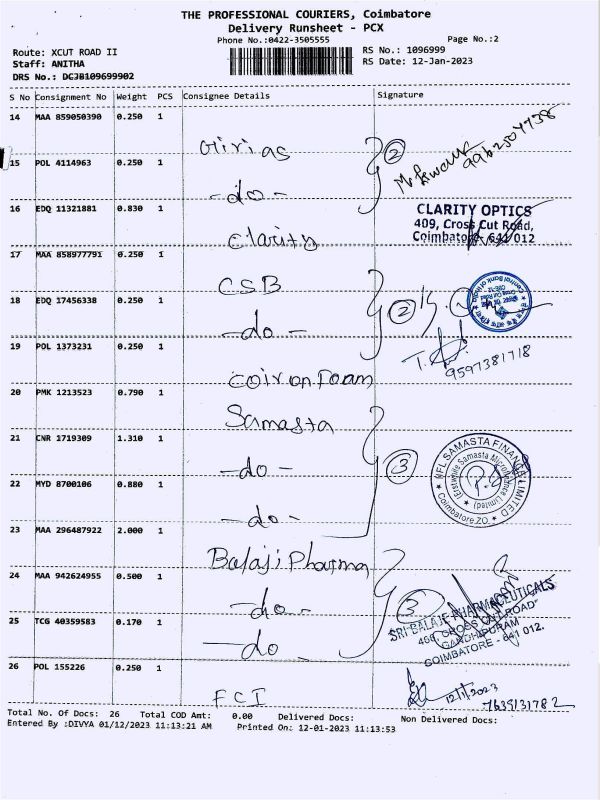 THE PROFESSIONAL COURIERS, Coimbatore
Delivery Runsheet - PCX
Phone No.:0422-3505555 Page No.:2
Route: XCUT ROAD II RS No.: 1096999
Staff: ANITHA RS Date: 12-Jan-2023
DRS No.: DCJB109699902
S No Consignment No Weight PCS Consignee Details Signature
14 MAA 859050390 0.250 1 Girias
15 POL 4114963 0.250 1 -do- 2 9962504738
16 EDQ 11321881 0.830 1 Clarity
CLARITY OPTICS
409, Cross Cut Road,
Coimbatore - 641 012
17 MAA 858977791 0.250 1 CSB
18 EDQ 17456338 0.250 1 -do- 2
Central Bank of India
19 POL 1373231 0.250 1 Coiron Foam 9597381718
20 PMK 1213523 0.790 1 Samasta
21 CNR 1719309 1.310 1 -do- 3
IIFL SAMASTA FINANCE LIMITED
(Erstwhile Samasta Microfinance Limited)
Coimbatore ZO
22 MYD 8700106 0.880 1 -do-
23 MAA 296487922 2.000 1 Balaji Pharma
24 MAA 942624955 0.500 1 -do- 3
SRI BALAJE PHARMACEUTICALS
460, CROSS CUT ROAD
GANDHIPURAM
COIMBATORE - 641 012.
25 TCG 40359583 0.170 1 -do-
26 POL 155226 0.250 1 FCI 12/1/2023
7639131782
Total No. Of Docs: 26 Total COD Amt: 0.00 Delivered Docs: Non Delivered Docs:
Entered By :DIVYA 01/12/2023 11:13:21 AM Printed On: 12-01-2023 11:13:53